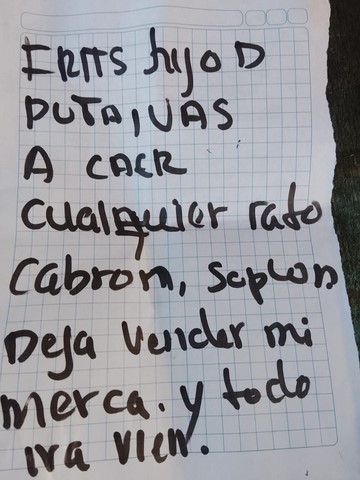 ERITS hijo D
PUTA, VAS
A CAER
CUALQUIER rato
Cabron, Soplon
Deja Vender mi
merca. y todo
ira vien.